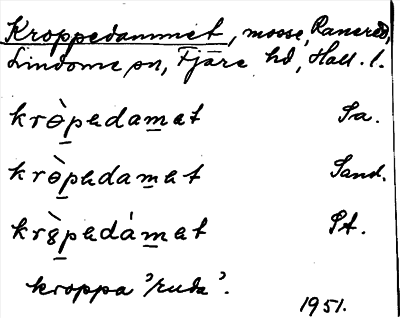 Kroppedammet, mosse, Ranered,
Lindome sn, Fjäre hd, Hall. l.
krɵ̀p̲edam̲et Sa.
krɵ̀p̲edam̲et Sand.
kr8̀p̲edám̲et St.
kroppa 'ruda'.
1951.